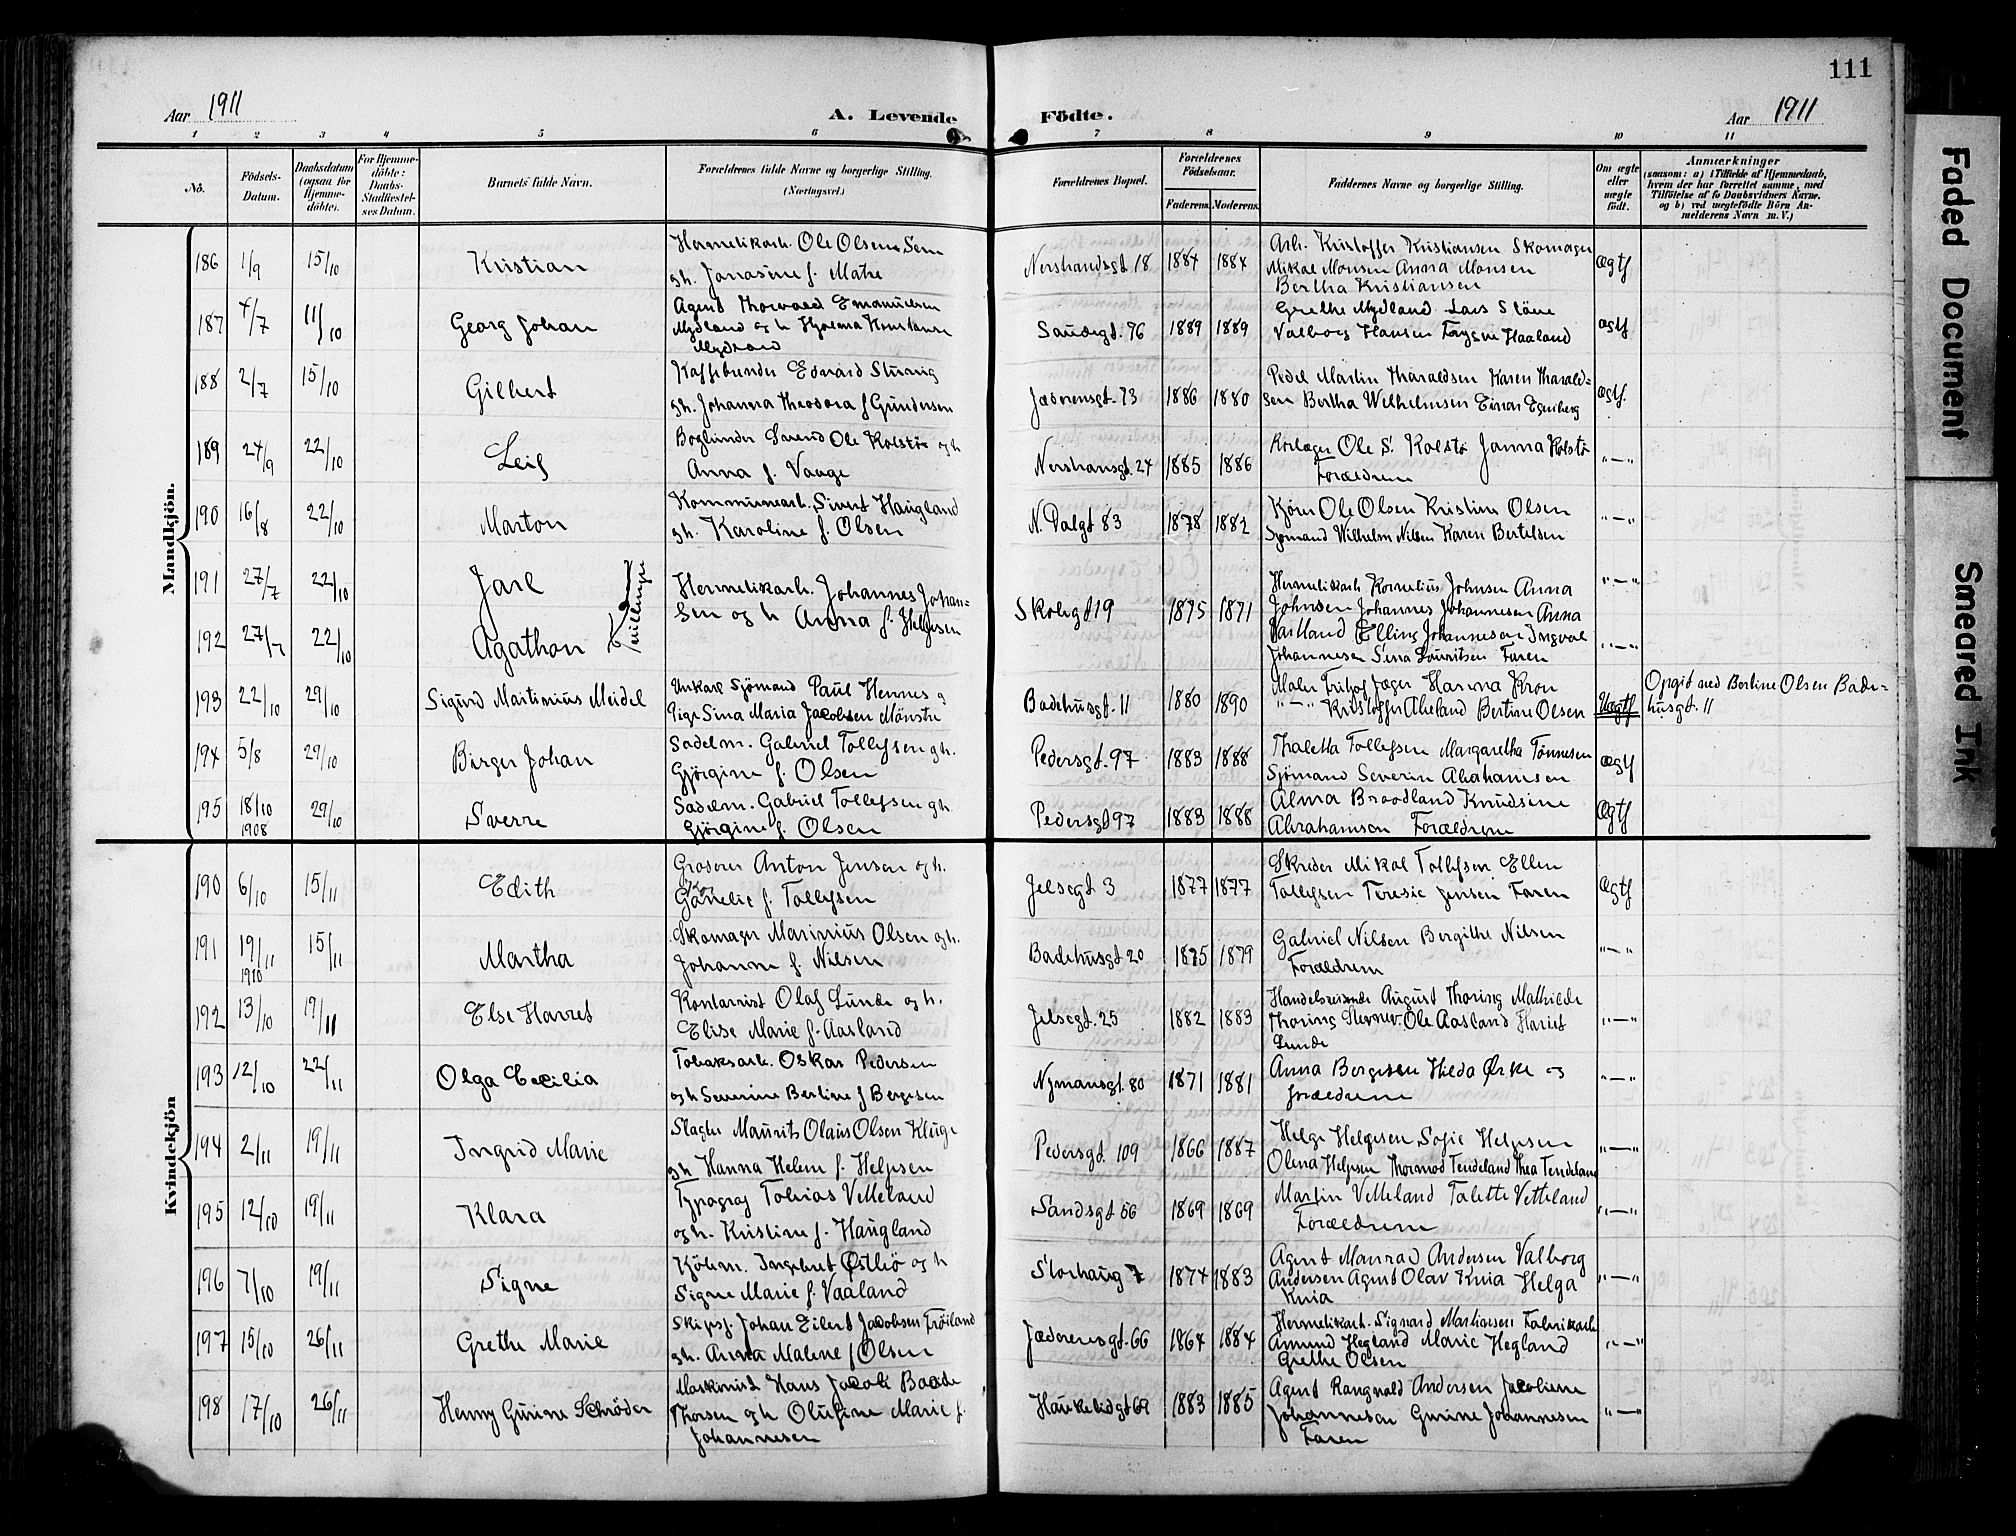 111
Aar 1911
A. Levende Födte.
Aar 1911
1 2 3 4 5 6 7 8 9 10 11
No.
Födsels-Datum.
Daabsdatum (ogsaa for Hjemmedöbte).
For Hjemmedöbte: Daabs-Stadfæstelses Datum.
Barnets fulde Navn.
Forældrenes fulde Navne og borgerlige Stilling. (Næringsvei.)
Forældrenes Bopæl.
Forældrenes Födselsaar.
Faderens. Moderens.
Faddernes Navne og borgerlige Stilling.
Om ægte eller uægte födt.
Anmærkninger
(saasom: a) i Tilfælde af Hjemmedaab, hvem der har forrettet samme, med Tilföielse af to Daabsvidners Navne, og b) ved uægtefödte Börn Anmelderens Navn m. V.)
Mandkjön.
186 1/9 15/10 Kristian
Hermetikarb. Ole Olsen Sem
gh. Janasine f. Matre
Nershandsgt 18 1884 1884
Arb. Kristoffer Kristiansen Skomager
Mikal Monsen Anna Monsen
Bertha Kristiansen
Ægtf
187 4/7 11/10 Georg Johan
Agent Thorvald Emanuelsen
Mydland og h Hjalma Konstanse
Mydland
Sandegt. 76 1889 1889
Grethe Mydland Lars Stöne
Valborg Hansen Haaland
ægtf
188 2/7 15/10 Gilbert
Kaffebrender Edvard
gh. Johanna Theodora f Gundersen
Jæderensgt. 73 1886 1880
Pedel Martin Tharaldsen Karen Tharald-
sen Bertha Wilhelmsen Einar
Ægtf.
189 24/9 22/10 Leif
Bogbinder Svend Ole Kolstö og h
Anna f. Vaage
Nershansgt. 24 1885 1886
Ole S. Kolstö Janna Kolstö
Forældrene
" — "
190 16/8 22/10 Marton
Kommunearb. Sivert Haugland
gh. Karoline f. Olsen
N. Dalgt 83 1878 1882
Ole Olsen Kristine Olsen
Sjömand Wilhelm Nilsen Karen Bertelsen
" — "
191 27/7 22/10 Jarl
192 27/7 22/10 Agathon
Tvillinger
Hermetikarb. Johannes Johan-
sen og h Anna f. Helgesen
Skolegt 19 1875 1871
Hermetikarb Kornelius Johnsen Anna
Johnsen Johannes Johannesen Anna
Elling Johannesen Ingval
Johannesen Sina Lauritsen Faren
" — "
" — "
193 22/10 29/10 Sigurd Martinius Meidel
Unkarl Sjömand Paul Hennes og
Pige Sina Maria Jacobsen Mönstre
Badehusgt. 11 1880 1890
Maler Fritjof Jæger Hanna Kron
" — " Kristoffer Aheland Bertine Olsen
Uægtf
Opgit ved Bertine Olsen Bade-
husgt. 11
194 5/8 29/10 Birger Johan
Sadelm. Gabriel Tollefsen gh.
Gjörgine f. Olsen
Pedersgt. 97 1883 1888
Thaletta Tollefsen Margaretha Tönnesen
Sjömand Severin Abrahamsen
ægtf
195 18/10 1908 29/10 Sverre
Sadelm. Gabriel Tollefsen gh.
Gjörgine f. Olsen
Pedersgt 97 1883 1888
Alma Braadland Knudsine
Abrahamsen Forældrene
Ægtf
Kvindekjön
190 6/10 15/11 Edith
Groserer Anton Jensen og h.
f. Tollefsen
Jelsegt 3 1877 1877
Skreder Mikal Tollefsen Ellen
Tollefsen Teresie Jensen Faren
Ægtf
191 19/11 1910 15/11 Martha
Skomager Marinius Olsen og h.
Johanne f. Nilsen
Badehusgt 20 1875 1879
Gabriel Nilsen Bergithe Nilsen
Forældrene
" — "
192 13/10 19/11 Else Harret
Kontorist Olaf Lunde og h.
Elise Marie f. Aasland
Jelsegt. 25 1882 1883
Handelsreisende August Thoring Mathilde
Thoring Ole Aasland Hariet
Lunde
" — "
193 12/10 22/11 Olga Cecilia
Tobaksarb. Oskar Pedersen
og h Severine Bertine f Bergesen
Nymansgt. 80 1871 1881
Anna Bergesen Hilda Ørke og
forældrene
" — "
194 2/11 19/11 Ingrid Marie
Slagter Maurits Olaus Olsen Kluge
gh Hanna Helene f. Helgesen
Pedersgt. 109 1866 1887
Helge Helgesen Sofie Helgesen
Olena Helgesen Thormod Tendeland Thea Tendeland
" — "
195 12/10 19/11 Klara
Typograf Tobias Vetteland
og h. Kristine f. Haugland
Sandsgt 56 1869 1869
Martin Vetteland Talette Vetteland
Forældrene
" — "
196 7/10 19/11 Signe
Kjöbm. Ingebret Østbö og h
Signe Marie f. Vaaland
Storhaug 7 1874 1883
Agent Manrad Andersen Valborg
Andersen Agent Olav Kvia Helga
Kvia
" — "
197 15/10 26/11 Grethe Marie
Skipsf. Johan Eilert Jacobsen Fröiland
gh. Anna Malene f Olsen
Jæderensgt. 66 1864 1884
Hermetikarb. Sigvard Martinsen Fabrikarb
Amund Hegland Marie Hegland
Grethe Olsen
" — "
198 17/10 26/11 Henny Gurine Schröder
Maskinist Hans Jacob Baade
Thorsen og h Olufine Marie f.
Johannesen
Haukelidgt 69 1883 1885
Agent Rangvald Andersen Jacobine
Johannesen Gurine Johannesen
Faren
" — "
Faded Document
Smeared Ink